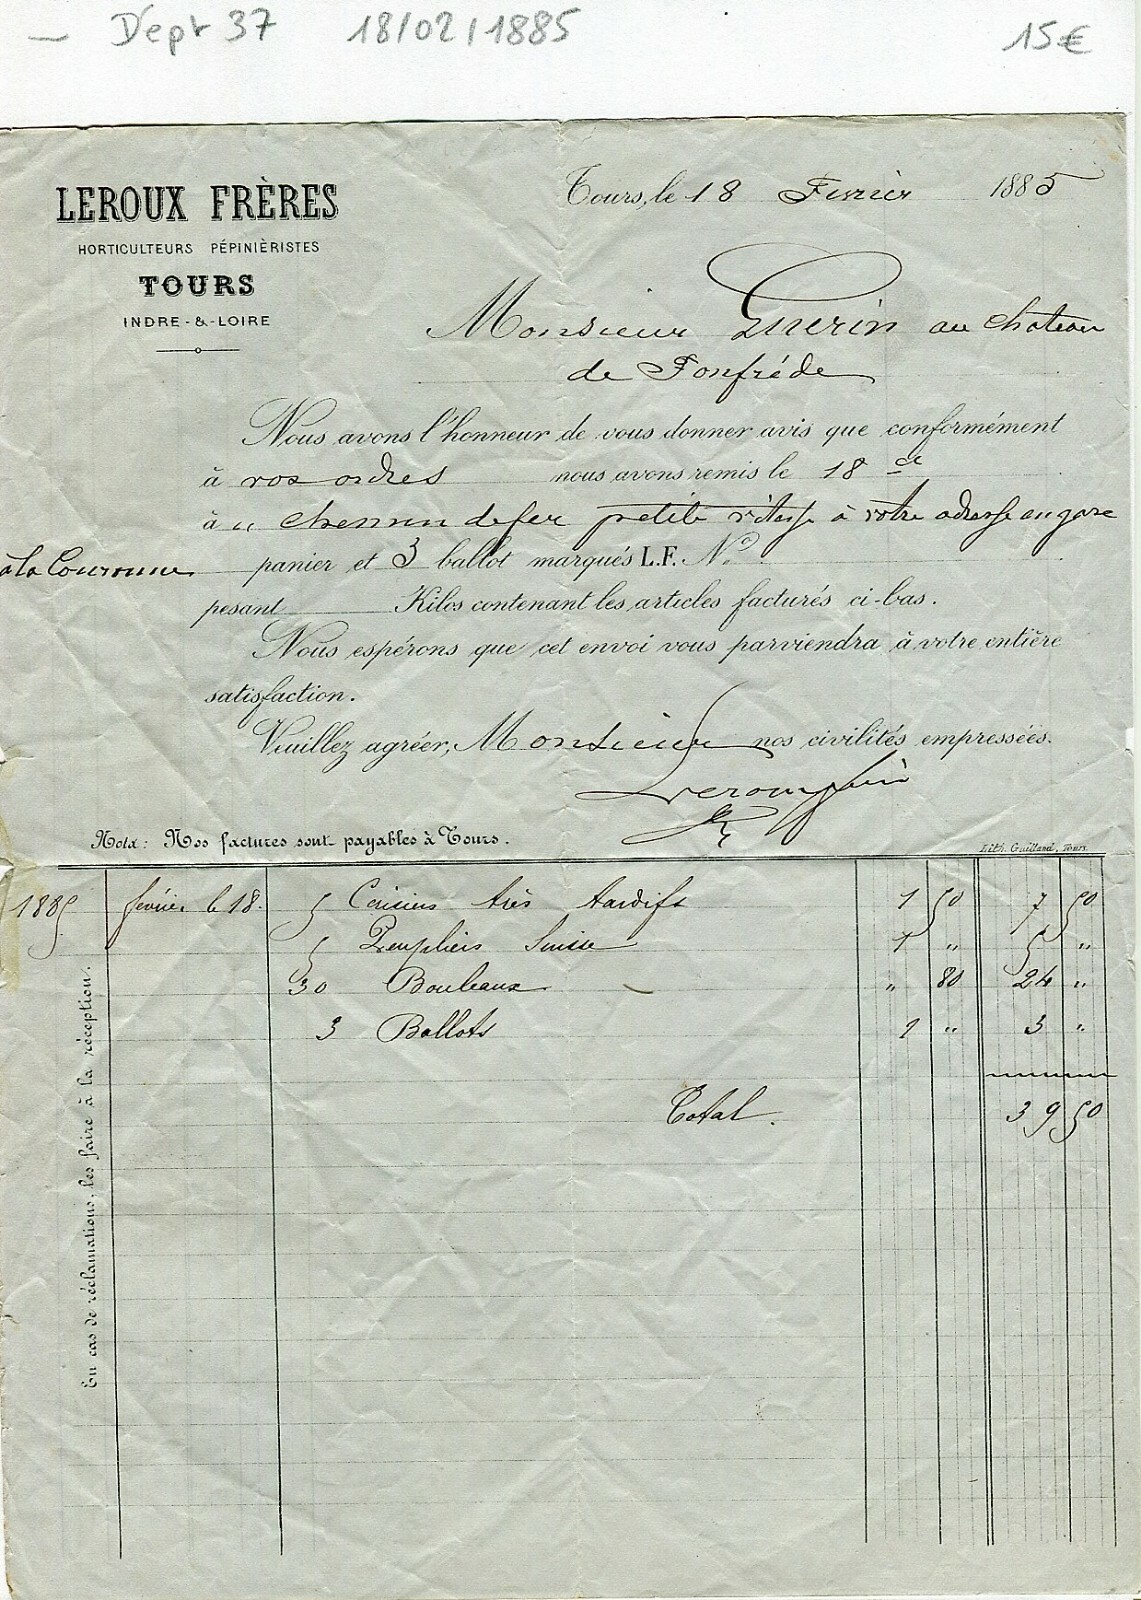 — Dépt 37 18/02/1885 15€
LEROUX FRÈRES
HORTICULTEURS PÉPINIÈRISTES
TOURS
INDRE-&-LOIRE
Tours, le 18 Fevrier 1885
Monsieur Guerin au chateau
de Fonfréde
Nous avons l'honneur de vous donner avis que conformément
à vos ordres nous avons remis le 18 ct
à u chemin de fer petite vitesse à votre adresse en gare
à la Couronne panier et 3 ballot marqués L.F. No
pesant Kilos contenant les articles facturés ci-bas.
Nous espérons que cet envoi vous parviendra à votre entière
satisfaction.
Veuillez agréer, Monsieur nos civilités empressées.
Leroux
Nota: Nos factures sont payables à Tours.
Lith. Guilland, Tours.
1885 février le 18. 5 Cerisiers très tardifs 1 50 7 50
5 Peupliers Suisse 1 " 5 "
30 Bouleaux " 80 24 "
3 Ballots 1 " 3 "
Total. 39 50
En cas de réclamations, les faire à la réception.